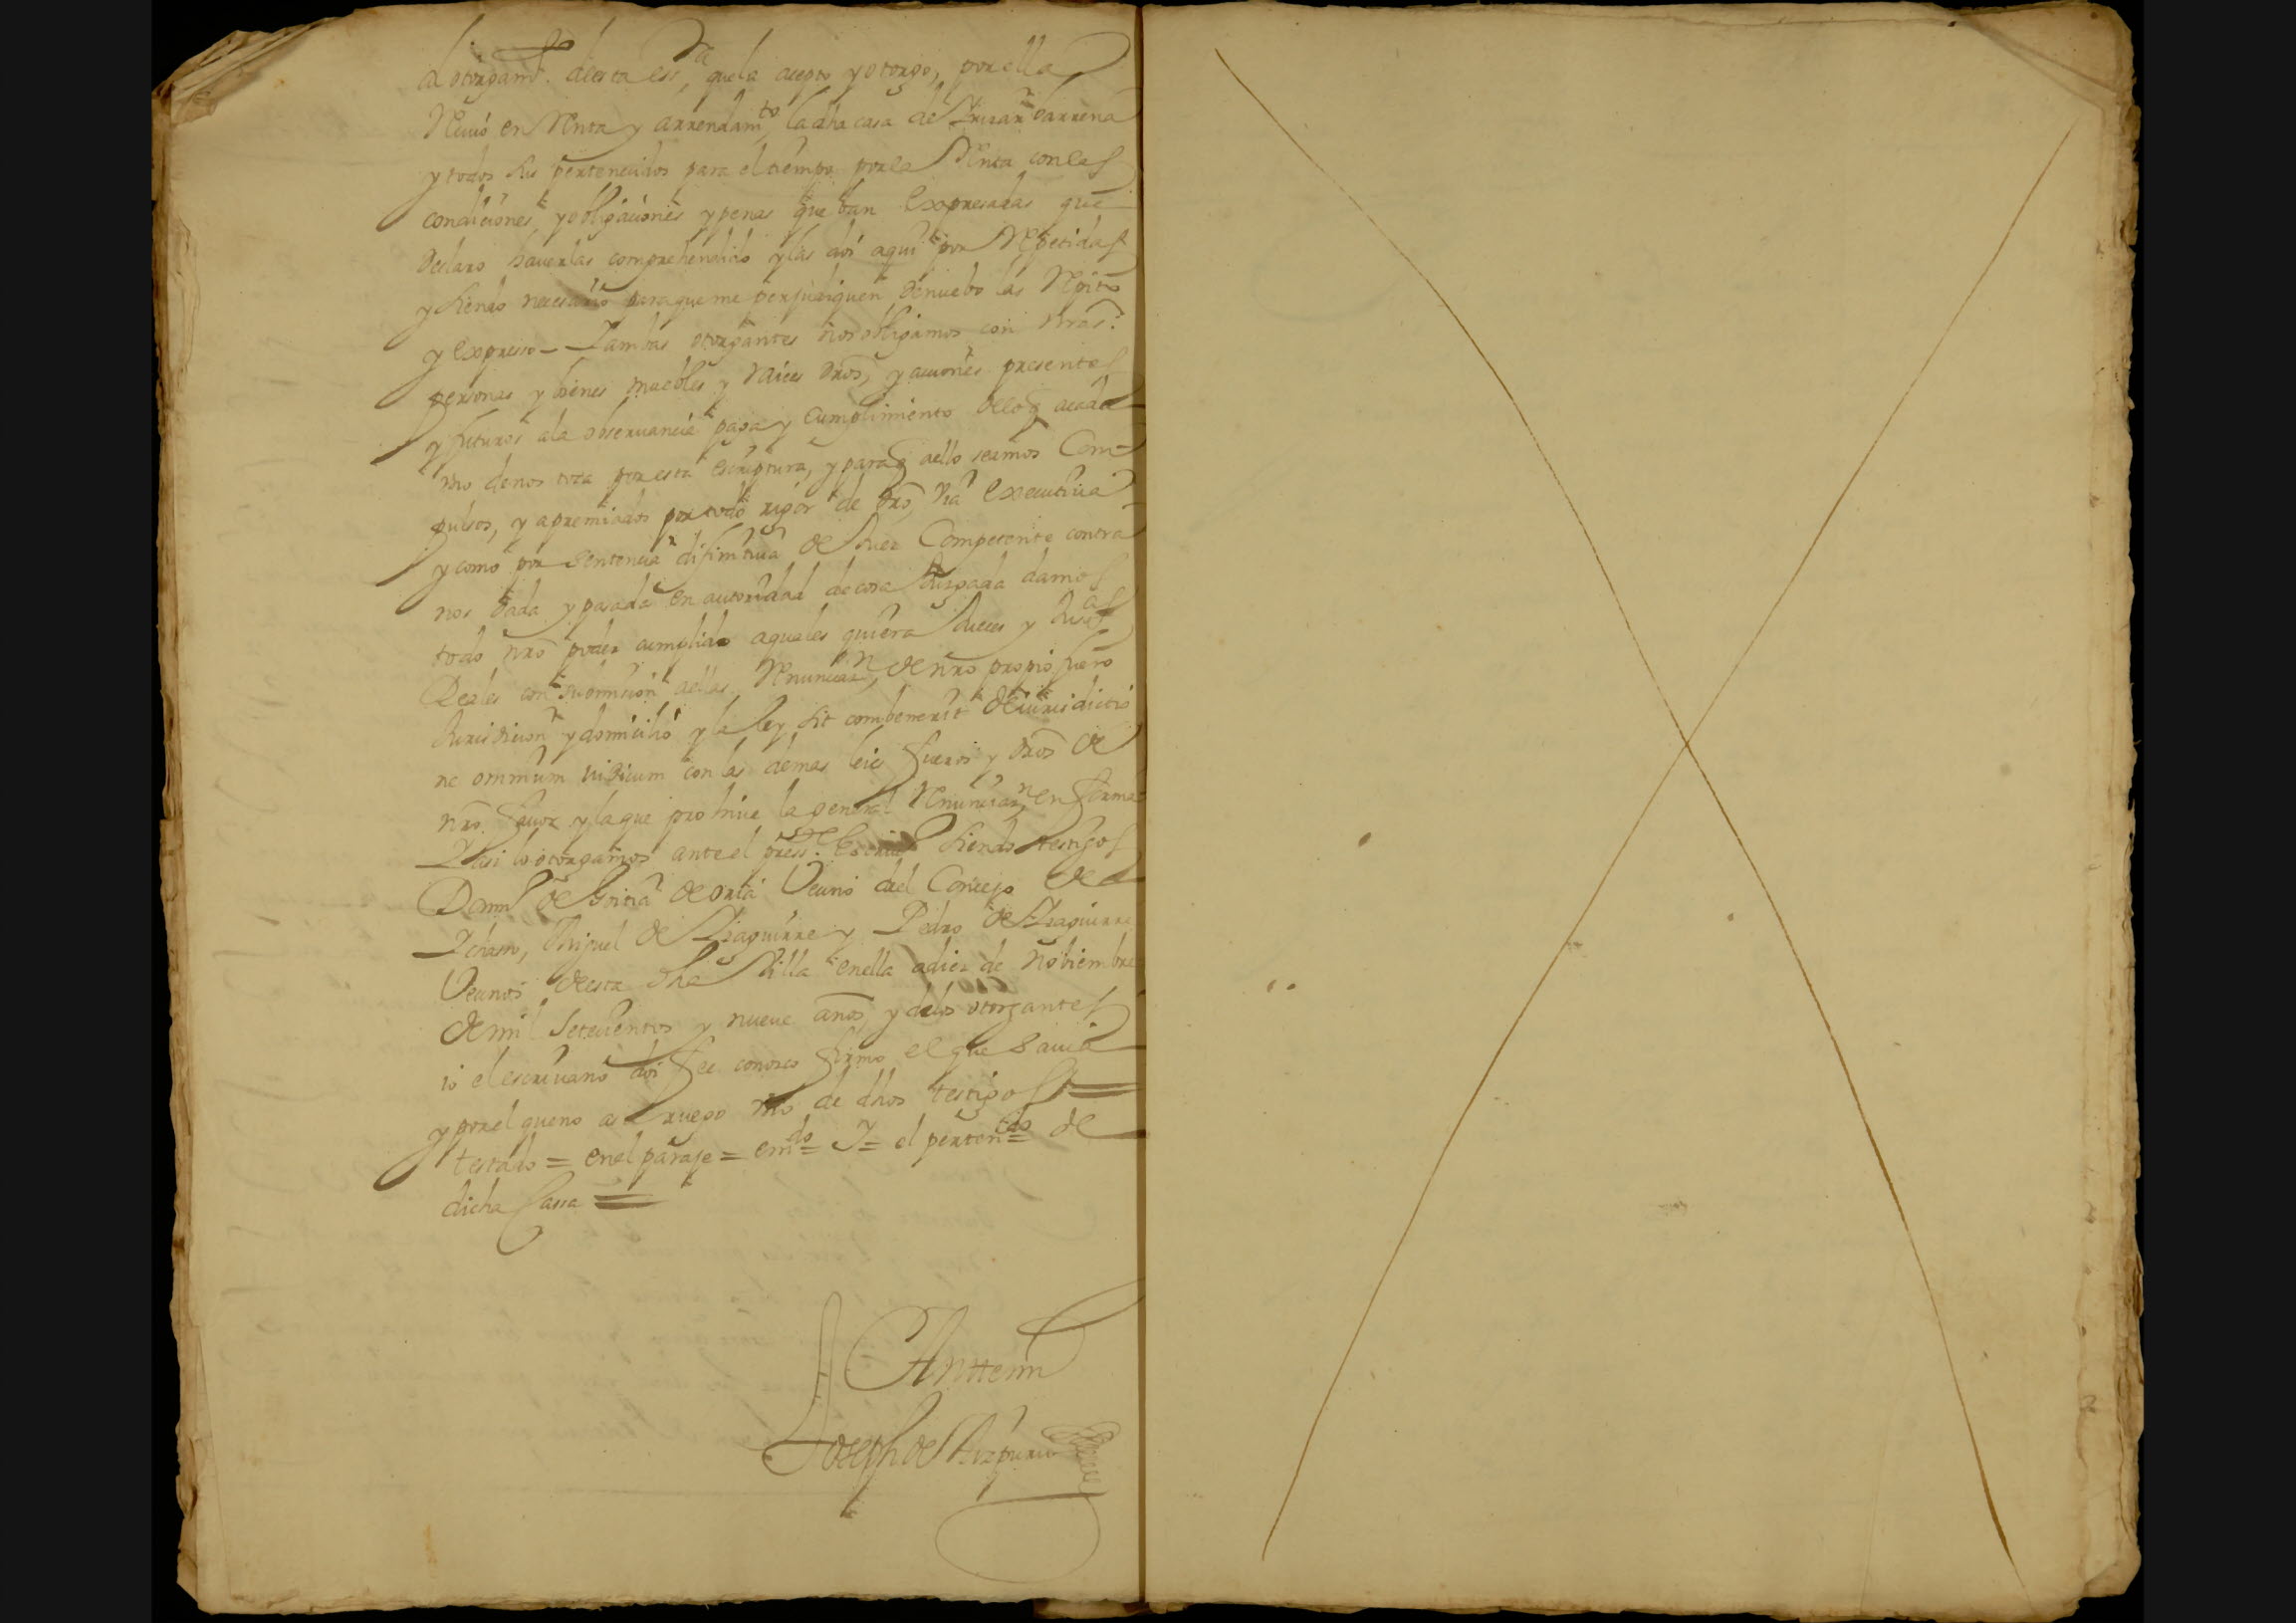 al otorgamto. de esta essra, que la acepto y otorgo, por ella
Reciuo en Renta y arrendamto, la dha casa de barrena
y todos sus pertenecidos para el tiempo por la Renta con las
condiciones, y obligaciones y penas que ban expresadas que
declaro hauerlas comprehendido y las doi aqui por Repetidas
y siendo necesario para que me perjudiquen denuebo las Repito
y expreso - Y ambas otorgantes nos obligamos con nras.
personas y bienes muebles y raices dros, y acciones presentes
y futuros a la obseruancia paga y cumplimiento de lo q acada
vno de nos toca por esta escriptura, y para q aello seamos Com-
pulsos, y apremiados por todo rigor de dro, via executiua
y como por sentencia difinitiua de Juez Competente contra
nos dada y pasada en autoridad de cosa Juzgada damos
todo nro poder cumplido a quales quiera Jueces y Jusas
Reales con sumision aellas, Renunciazn, de nro propio fuero
Jurisdicion y domicilio y la ley sit combenerit de iurisdictio
ne omnium iudicum con las demas leies fueros y dros de
nro. fauor y la que prohiue la general Renunciazn en forma
Y asi lo otorgamos ante el presste. Escriuo siendo testigos
Domo de de oria Vecino del Concejo de
Ichaso, Miguel de y Pedro de
Vecinos de esta dha Villa en ella a diez de nobiembre
de mil setecientos y nueue años, y de los otorgantes
io el escriuano doi fee conozco firmo el que sauia
y por el que no a su ruego vno de dhos testigos =
testado = en el paraje = emdo = Y = el pertendo = de
dicha Cassa =
Anttemi
Joseph de Aizpuru